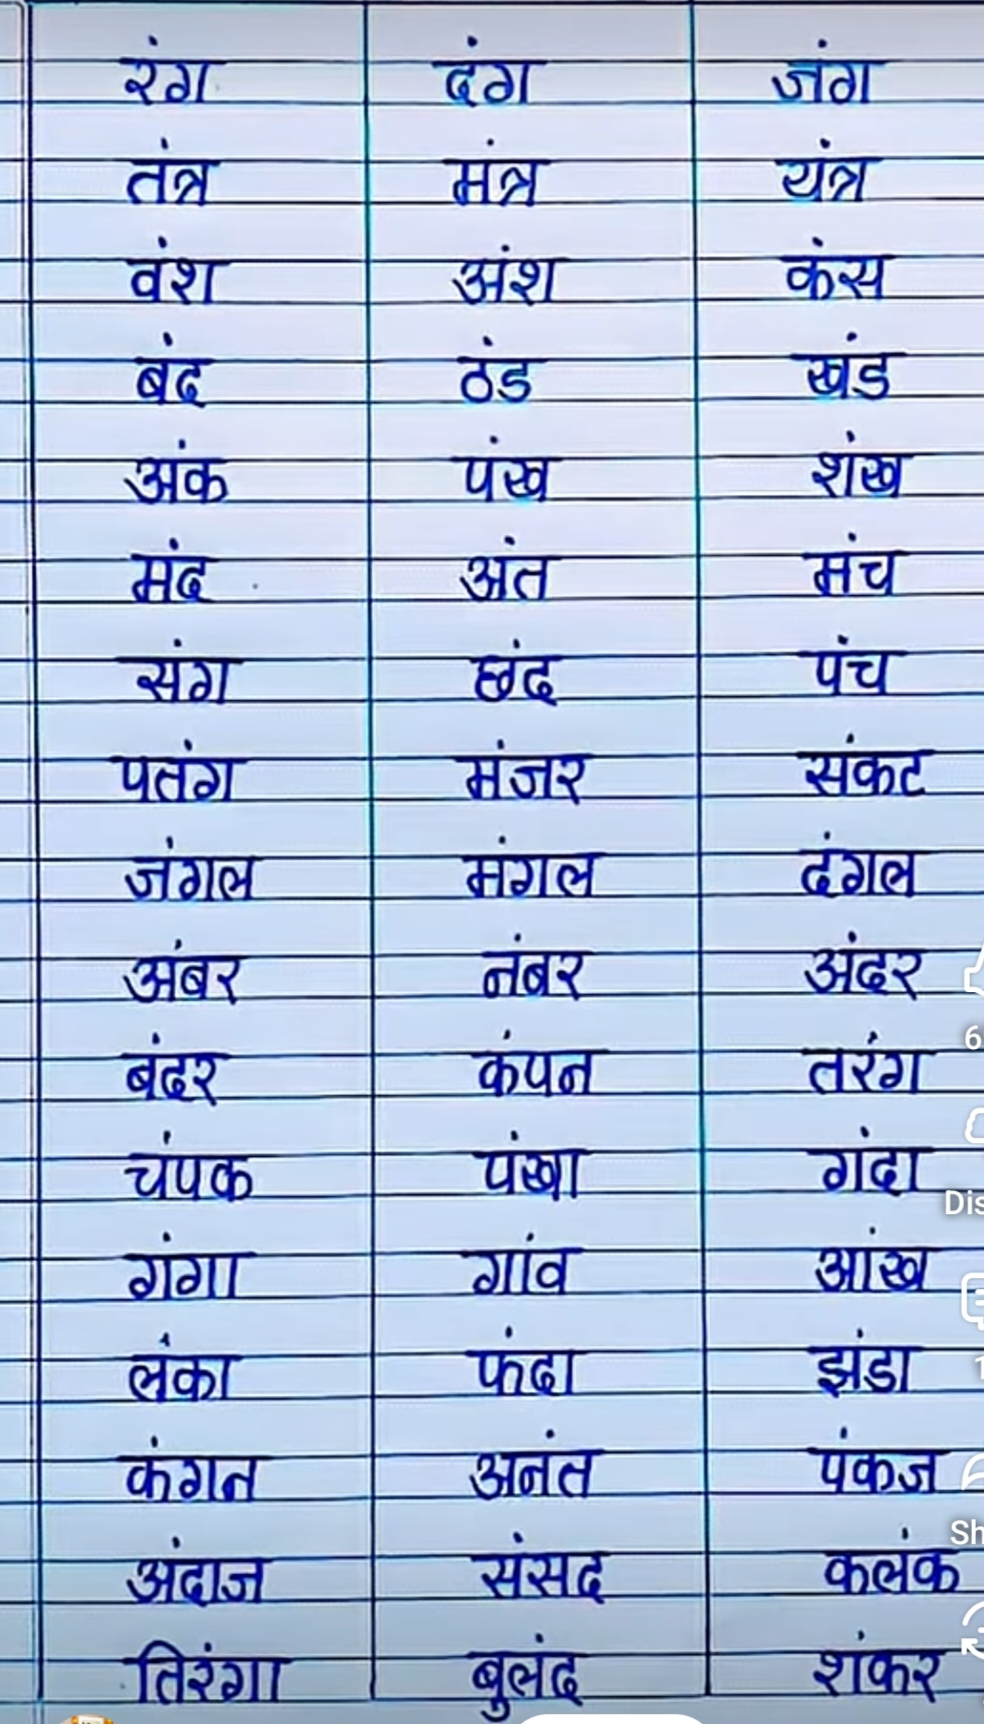 रंग दंग जंग
तंत्र मंत्र यंत्र
वंश अंश कंस
बंद ठंड खंड
अंक पंख शंख
मंद अंत मंच
संग छंद पंच
पतंग मंजर संकट
जंगल मंगल दंगल
अंबर नंबर अंदर
बंदर कंपन तरंग
चंपक पंखा गंदा
गंगा गांव आंख
लंका फंदा झंडा
कंगन अनंत पंकज
अंदाज संसद कलंक
तिरंगा बुलंद शंकर